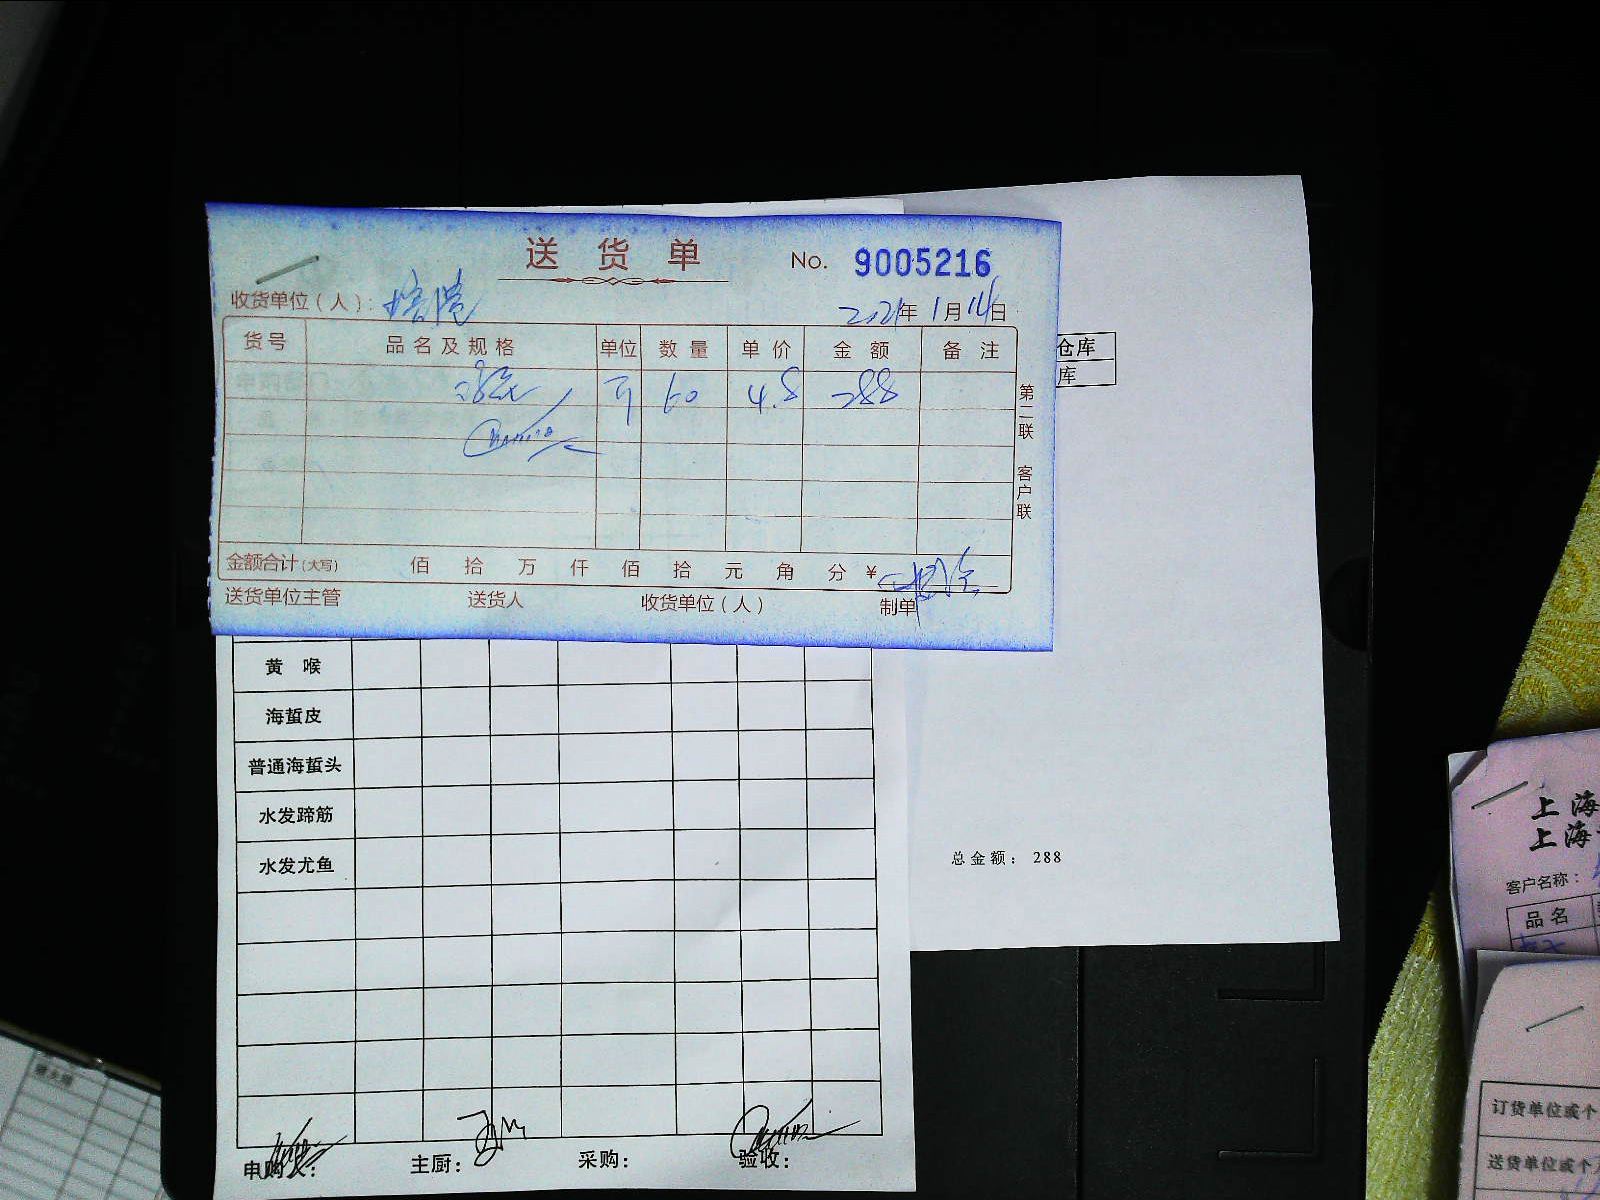 送货单
No. 9005216
收货单位（人）：
2021年1月14日
货号 品名及规格 单位 数量 单价 金额 备注
60 4.8 288
第二联 客户联
金额合计(大写) 佰 拾 万 仟 佰 拾 元 角 分 ¥
送货单位主管 送货人 收货单位（人） 制单
仓库
库
黄 喉
海蜇皮
普通海蜇头
水发蹄筋
水发尤鱼
申购人： 主厨： 采购： 验收：
总金额： 288
上海
上海
客户名称：
品名
订货单位或个
送货单位或个